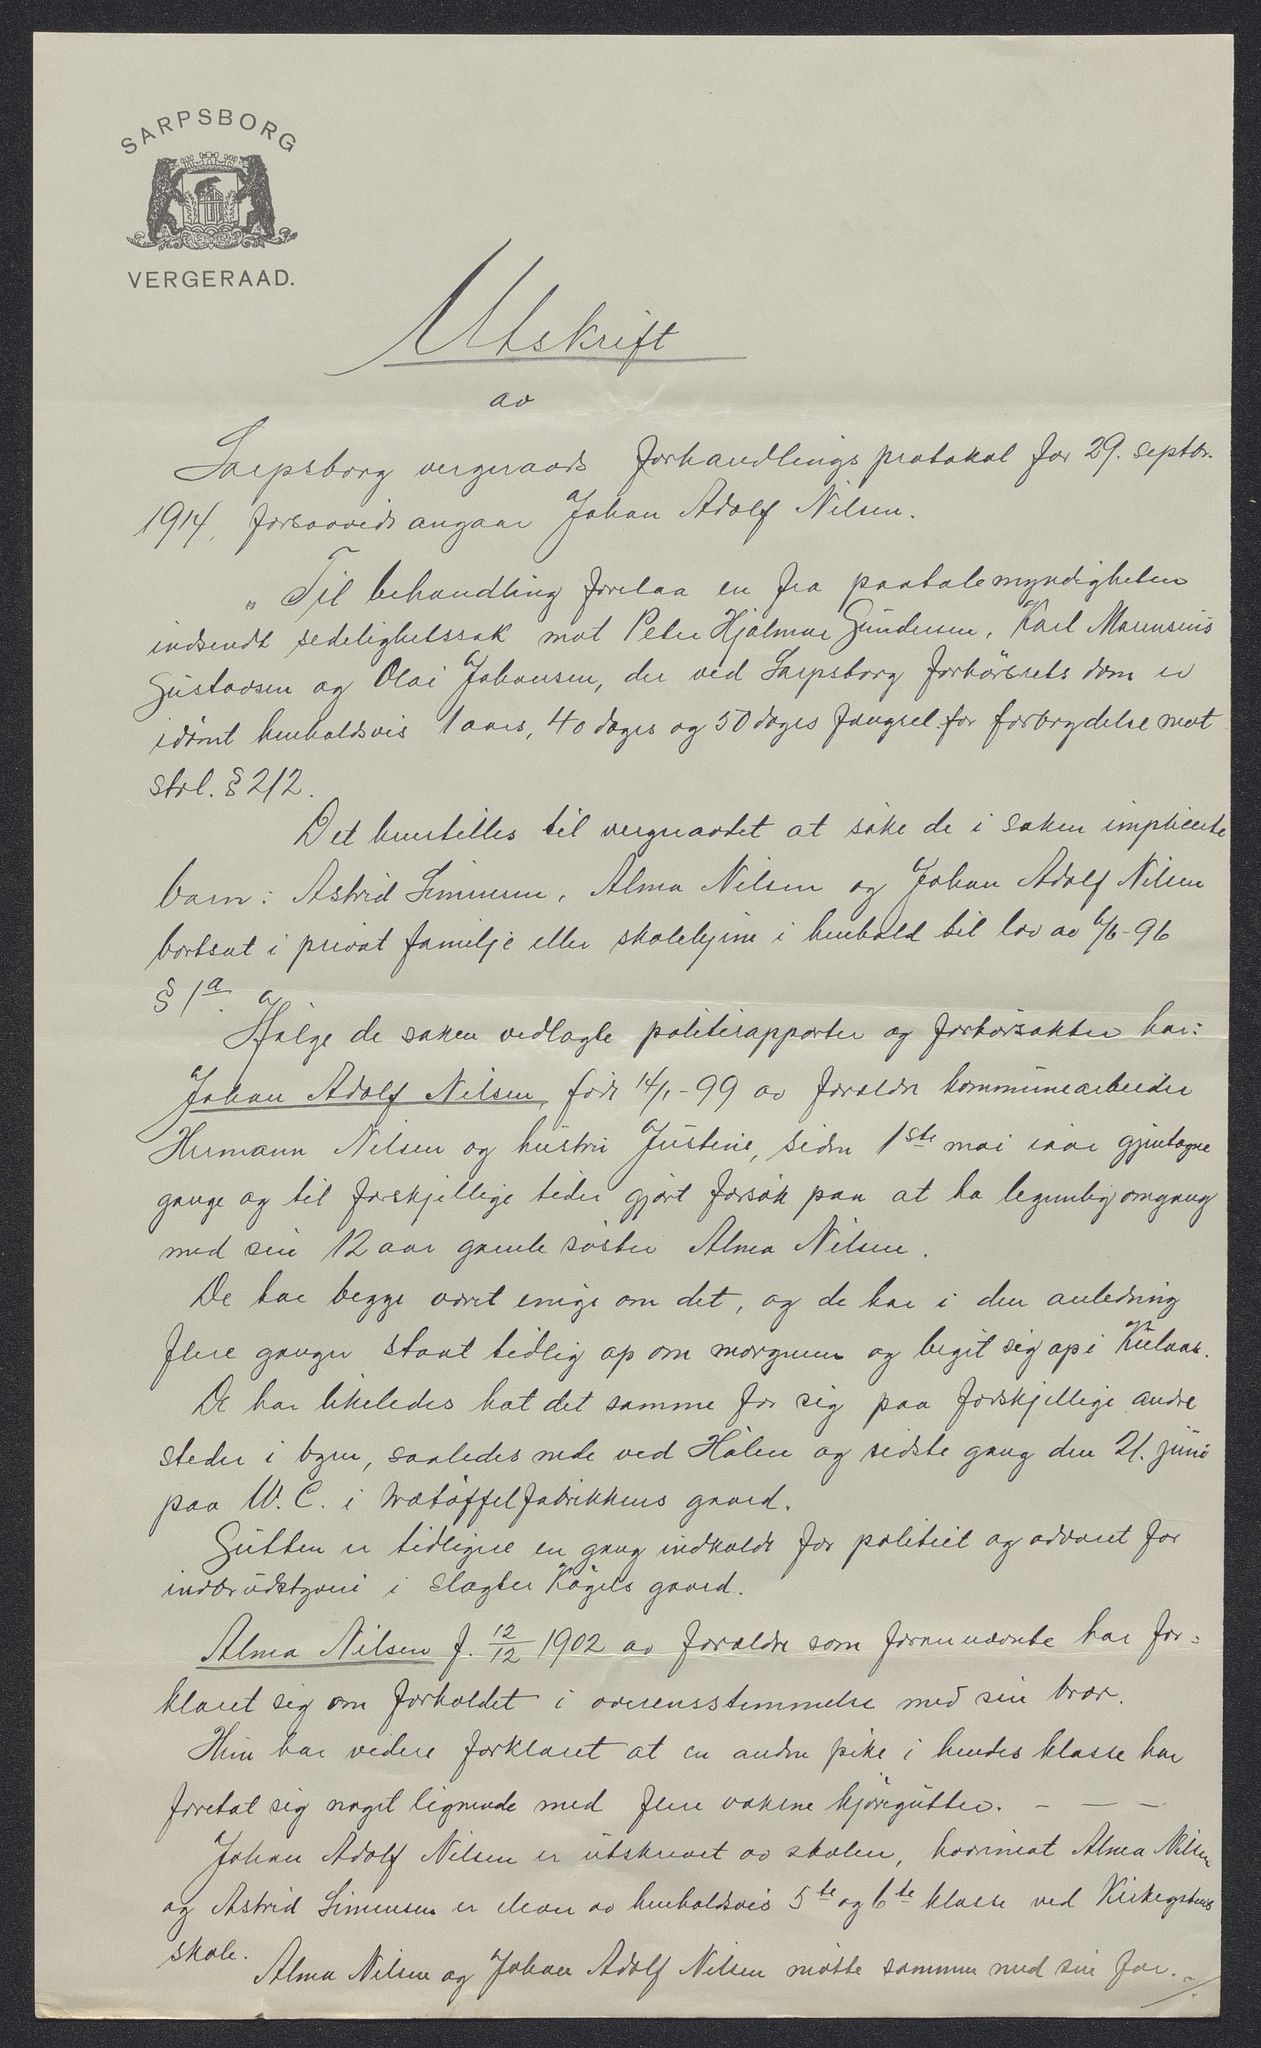 SARPSBORG
VERGERAAD.
Utskrift
av
Sarpsborg vergeraads forhandlingsprotokol for 29. septbr.
1914, forsaavidt angaar Johan Adolf Nilsen.
„Til behandling forelaa en fra paatalemyndigheten
indsendt sedelighetssak mot Peter Hjalmar Gundersen, Karl Marensius
Gustavsen og Olai Johansen, der ved Sarpsborg forhörsrets dom er
idömt henholdsvis 1 aars, 40 dages og 50 dages fængsel for forbrydelse mot
strl. § 212.
Det henstilles til vergeraadet at söke de i saken implicerte
barn: Astrid Simensen, Alma Nilsen og Johan Adolf Nilsen
bortsat i privat familje eller skolehjem i henhold til lov av 6/6-96
§ 1 a.
Ifölge de saken vedlagte politirapporter og forhörsakter har:
Johan Adolf Nilsen, född 14/1-99 av forældre kommunearbeider
Hermann Nilsen og hustru Justine, siden 1ste mai iaar gjentagne
gange og til forskjellige tider gjort forsök paa at ha legemlig omgang
med sin 12 aar gamle söster Alma Nilsen.
De har begge været enige om det, og de har i den anledning
flere ganger staat tidlig op om morgenen og begit sig op i Kulaas.
De har likeledes hat det samme for sig paa forskjellige andre
steder i byen, saaledes nede ved Hölen og sidste gang den 21. juni
paa W. C. i trætöffelfabrikkens gaard.
Gutten er tidligere en gang indkaldt for politiet og advaret for
indbrudstyveri i slagter Kögels gaard.
Alma Nilsen f. 12/12 1902 av forældre som forannævnte har for-
klaret sig om forholdet i overensstemmelse med sin bror.
Hun har videre forklaret at en anden pike i hendes klasse har
foretat sig noget lignende med flere voksne kjöregutter. - - -
Johan Adolf Nilsen er utskrevet av skolen, hvorimot Alma Nilsen
og Astrid Simensen er elever av henholdsvis 5te og 6te klasse ved Kirkegatens
skole.
Alma Nilsen og Johan Adolf Nilsen mötte sammen med sin far.